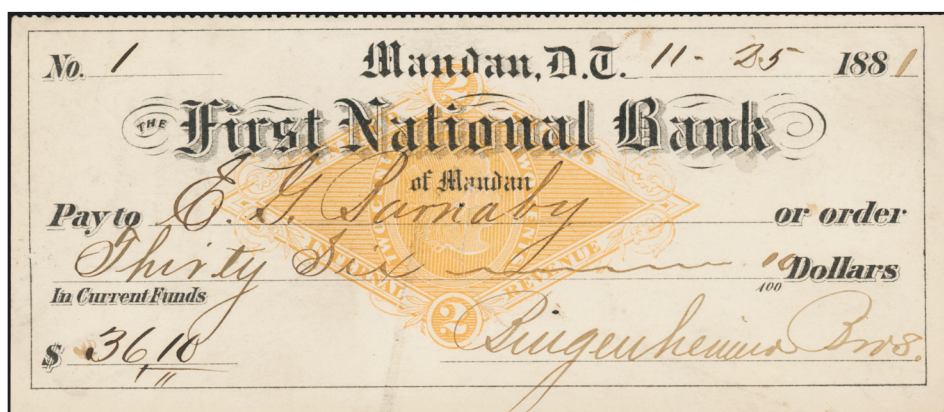 No. 1 Mandan, D.T. 11-25 1881
THE First National Bank
of Mandan
Pay to E. G. Barnaby or order
Thirty Six 10/100 Dollars
In Current Funds
$ 36,10 Bingenheimer Bros.
2
INTERNAL REVENUE
2